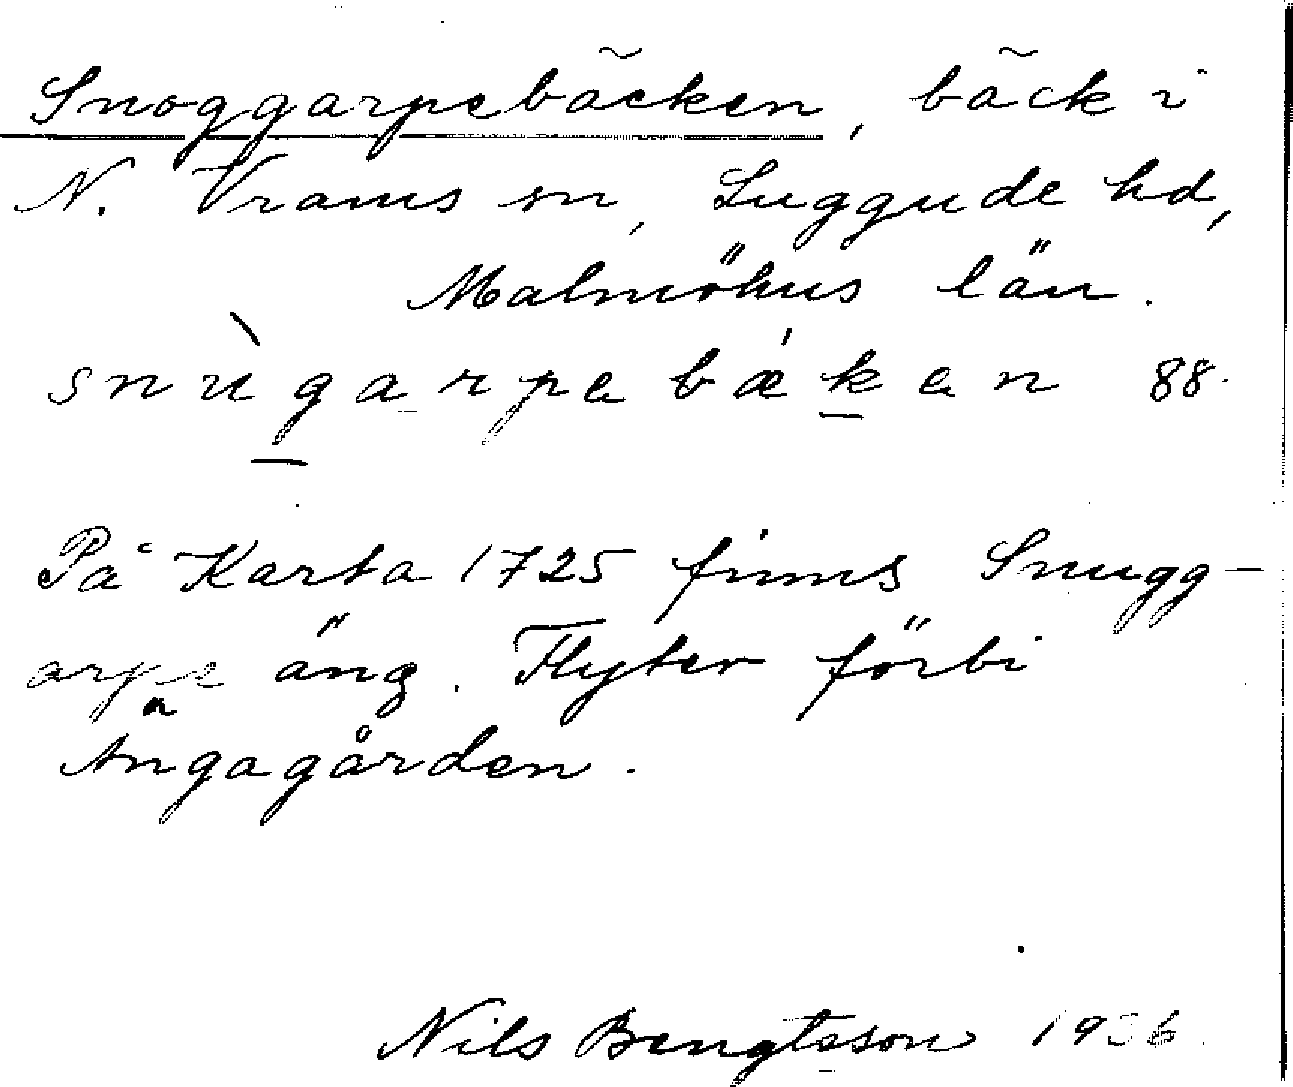 Snoggarpebäcken, bäck i
N. Vrams sn, Luggude hd,
Malmöhus län.
snùgarpe bǽken 88.
På Karta 1725 finns Snugg-
arpe äng. Flyter förbi
Ängagården.
Nils Bengtsson 1936